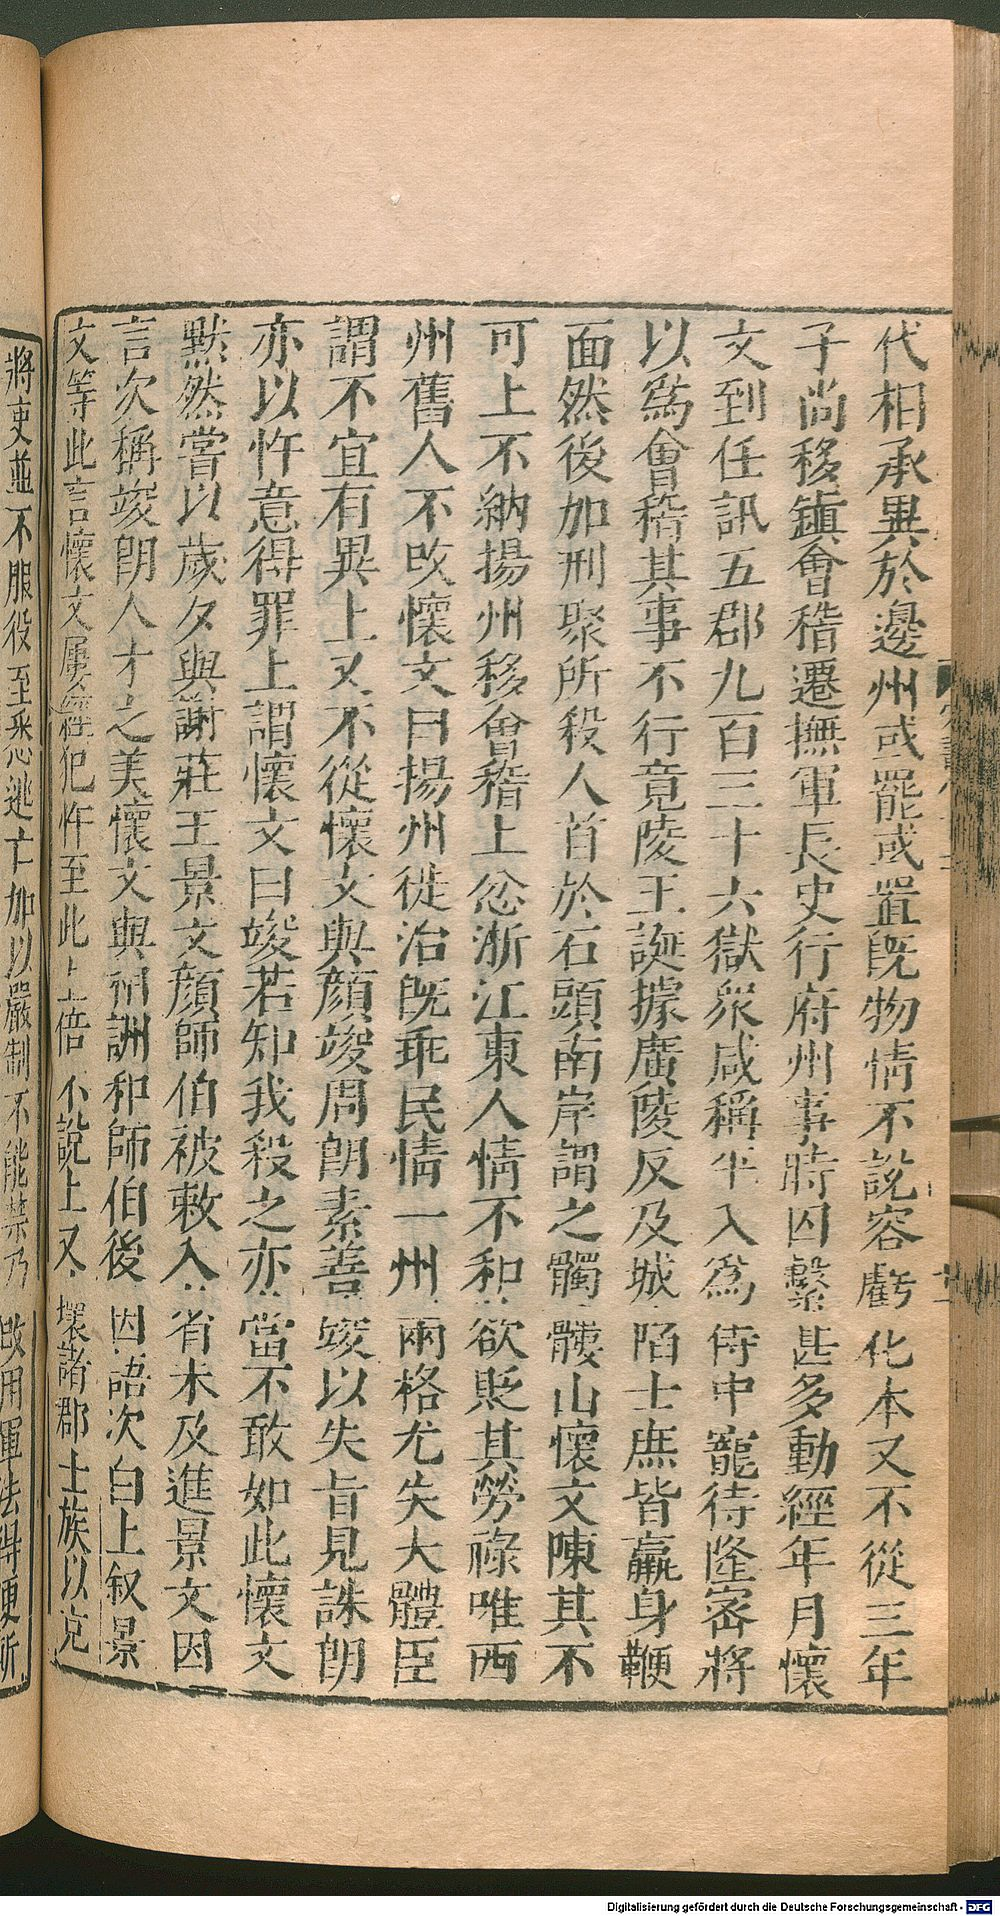 代相承異於邊州或罷或置旣物情不說容虧化本又不從三年
子尚移鎮會稽遷撫軍長史行府州事時囚繫甚多動經年月懷
文到任訊五郡九百三十六獄衆咸稱平入爲侍中寵待隆密將
以爲會稽其事不行竟陵王誕據廣陵反及城陷士庶皆羸身鞭
面然後加刑聚所殺人首於石頭南岸謂之髑髏山懷文陳其不
可上不納揚州移會稽上忿浙江東人情不和欲貶其勞祿唯西
州舊人不改懷文曰揚州徙治旣乖民情一州兩格尤失大體臣
謂不宜有異上又不從懷文與顏竣周朗素善竣以失旨見誅朗
亦以忤意得罪上謂懷文曰竣若知我殺之亦當不敢如此懷文
默然嘗以歲夕與謝莊王景文顏師伯被敕入省未及進景文因
言次稱竣朗人才之美懷文與相詶和師伯後因語次白上叙景
文等此言懷文屢經犯忤至此上倍不說上又壞諸郡士族以充
將吏並不服役至悉逃亡加以嚴制不能禁乃改用軍法得便斬
Digitalisierung gefördert durch die Deutsche Forschungsgemeinschaft - DFG